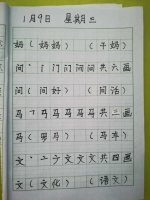 1月9日 星期三
妈(妈妈) (干妈)
问 丶丨门问问问共六画
问(问好) (问话)
马 马马马共三画
马(马) (马车)
文 丶亠文文共四画
文(文化) (语文)